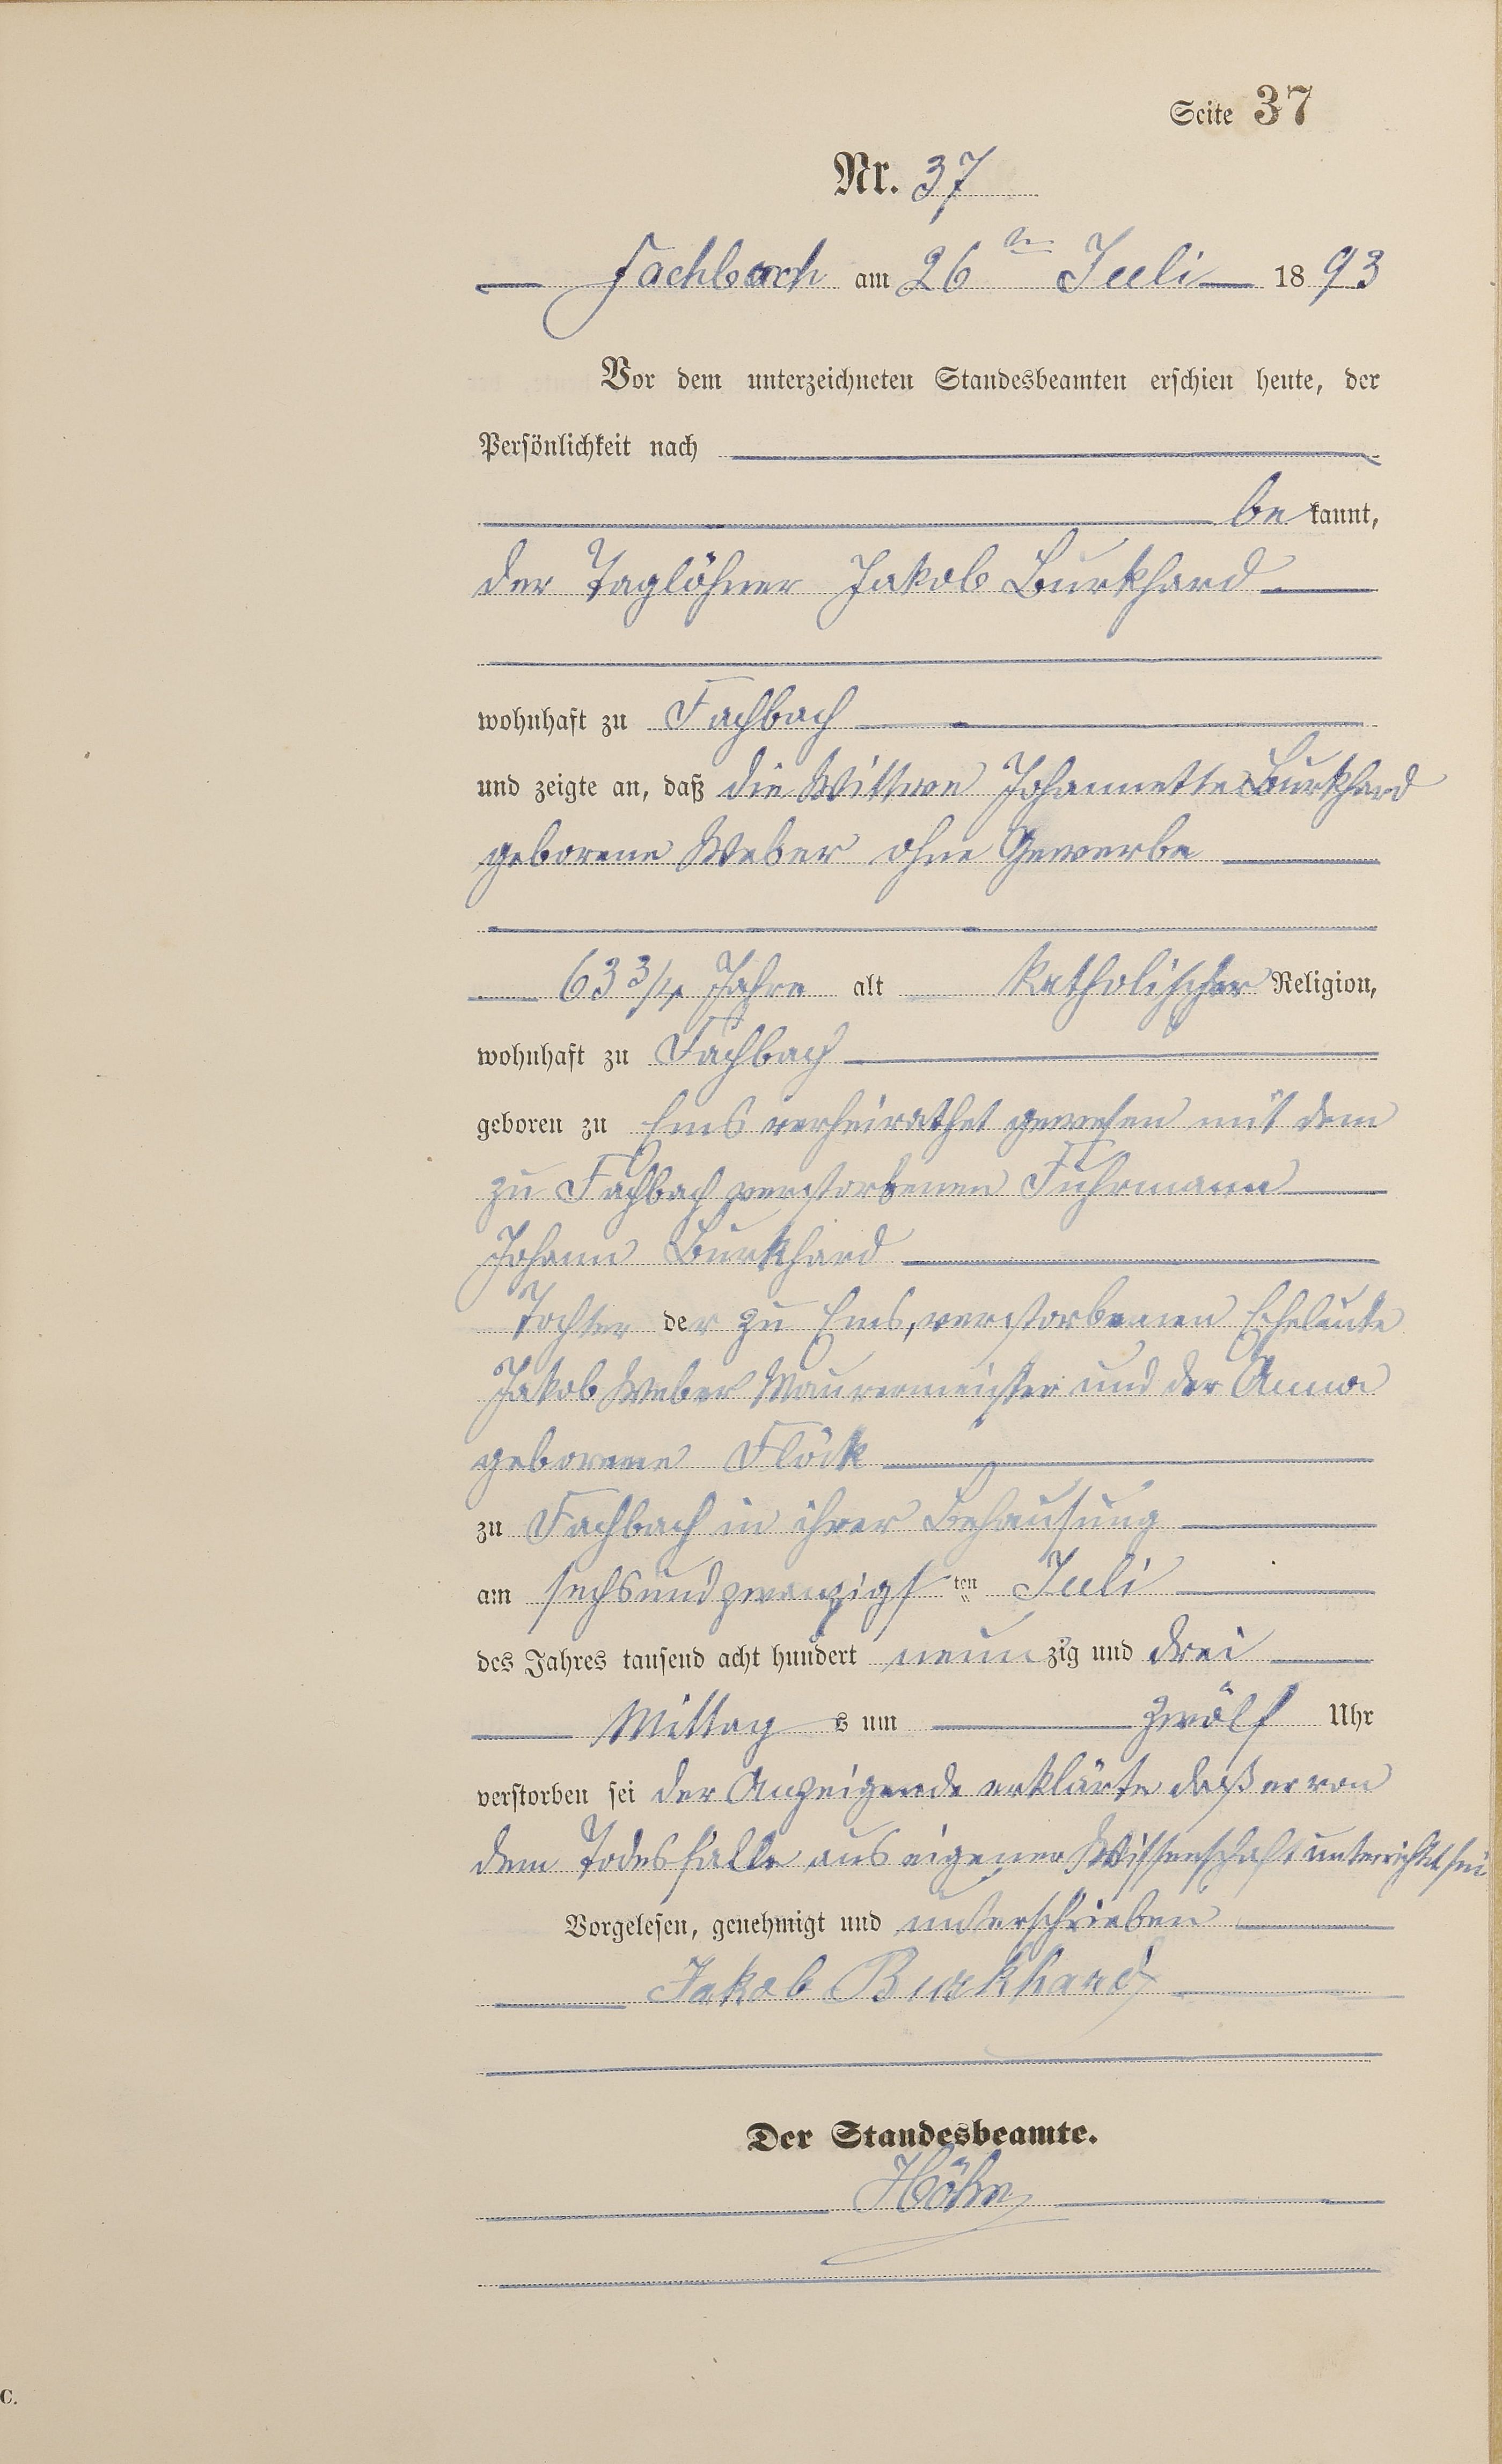 Seite 37
Nr. 37
Fachbach am 26ten Juli 1893
Vor dem unterzeichneten Standesbeamten erschien heute, der
Persönlichkeit nach
be kannt,
der Taglöhner Jakob Burkhard
wohnhaft zu Fachbach
und zeigte an, daß die Wittwe Johannette Burkhard
geborene Weber ohne Gewerbe
63 3/4 Jahre alt katholischer Religion,
wohnhaft zu Fachbach
geboren zu Ems verheirathet gewesen mit dem
zu Fachbach verstorbenen Fuhrmann
Johann Burkhard
Tochter der zu Ems, verstorbenen Eheleute
Jakob Weber Maurermeister und der Anna
geborene Flöck
zu Fachbach in ihrer Behausung
am sechsundzwanzigsten Juli
des Jahres tausend acht hundert neunzig und drei
Mittags um zwölf Uhr
verstorben sei der Anzeigende erklärte daß er von
dem Todesfalle aus eigener Wissenschaft unterrichtet sei
Vorgelesen, genehmigt und unterschrieben
Jakob Burkhard
Der Standesbeamte.
Höhn
C.